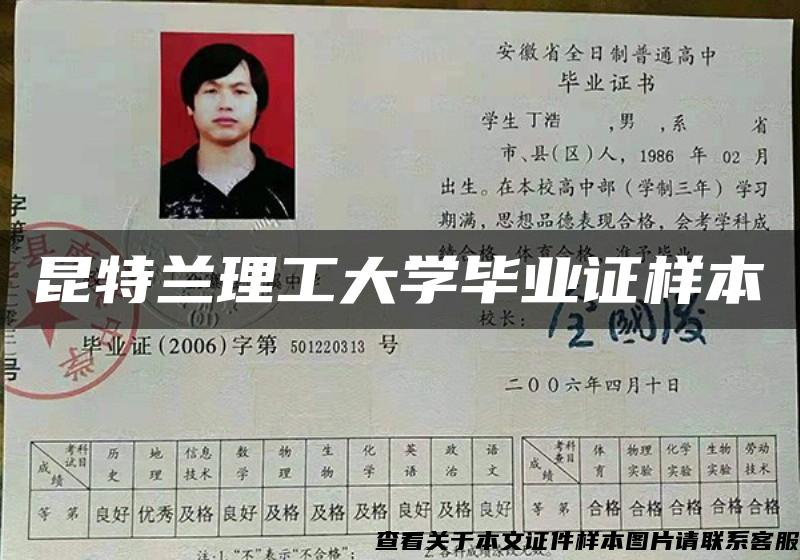 安徽省全日制普通高中
毕业证书
学生 丁浩 ,男 ,系 省
市、县(区)人, 1986 年 02 月
出生。在本校高中部(学制三年)学习
期满,思想品德表现合格,会考学科成
绩合格,体育合格,准予毕业
昆特兰理工大学毕业证样本
校长:
毕业证(2006)字第 501220313 号
二〇〇六年四月十日
考试科目 历史 地理 信息技术 数学 物理 生物 化学 英语 政治 语文
成绩
等第 良好 优秀 及格 良好 及格 及格 及格 良好 及格 良好
考查科目 体育 物理实验 化学实验 生物实验 劳动技术
成绩
等第 合格 合格 合格 合格 合格
注:1."不"表示"不合格";
查看关于本文证件样本图片请联系客服